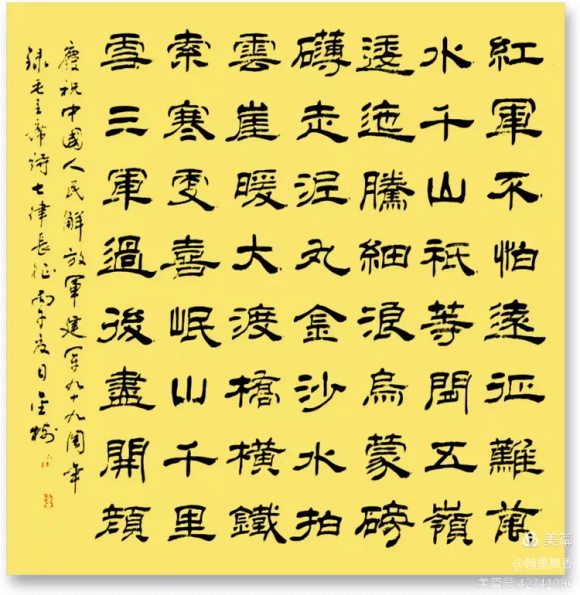 紅軍不怕遠征難萬
水千山祇等閒五嶺
逶迤騰細浪烏蒙磅
礴走泥丸金沙水拍
雲崖暖大渡橋橫鐵
索寒更喜岷山千里
雪三軍過後盡開顏
慶祝中國人民解放軍建軍九十九周年
錄毛主席詩七律長征丙午夏日
美篇
@翰墨飘香
美篇号